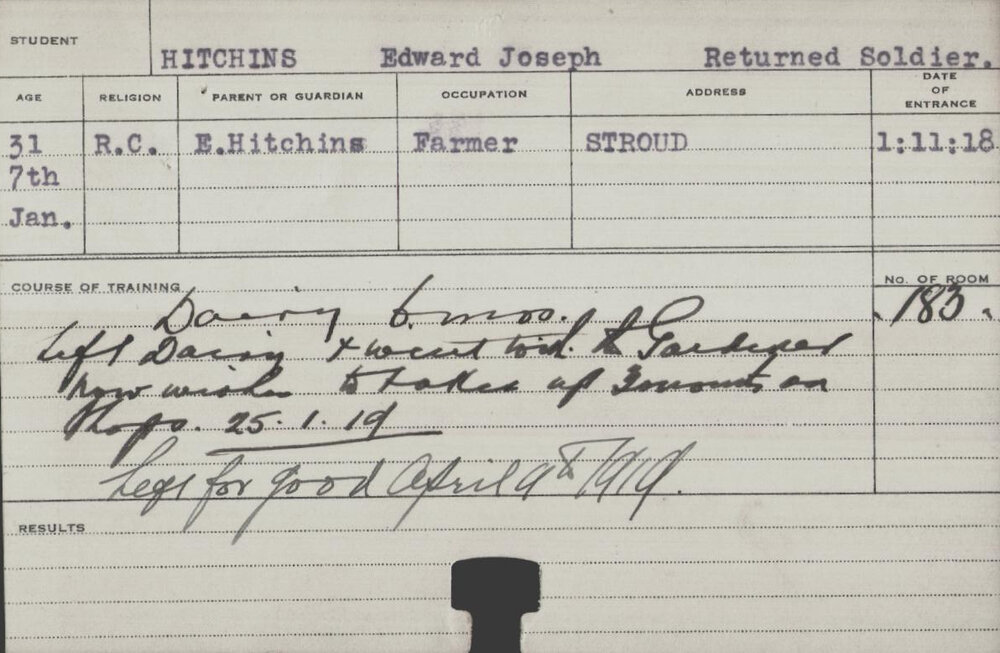 STUDENT HITCHINS Edward Joseph Returned Soldier.
AGE RELIGION PARENT OR GUARDIAN OCCUPATION ADDRESS DATE OF ENTRANCE
31 R.C. E.Hitchins Farmer STROUD 1:11:18
7th
Jan.
COURSE OF TRAINING No. OF ROOM
Dairy 6. mos. 183.
left Dairy & went with the Gardener
now wishes to take up 3 months on
Shops. 25.1.19
Left for good April 9th 1919.
RESULTS